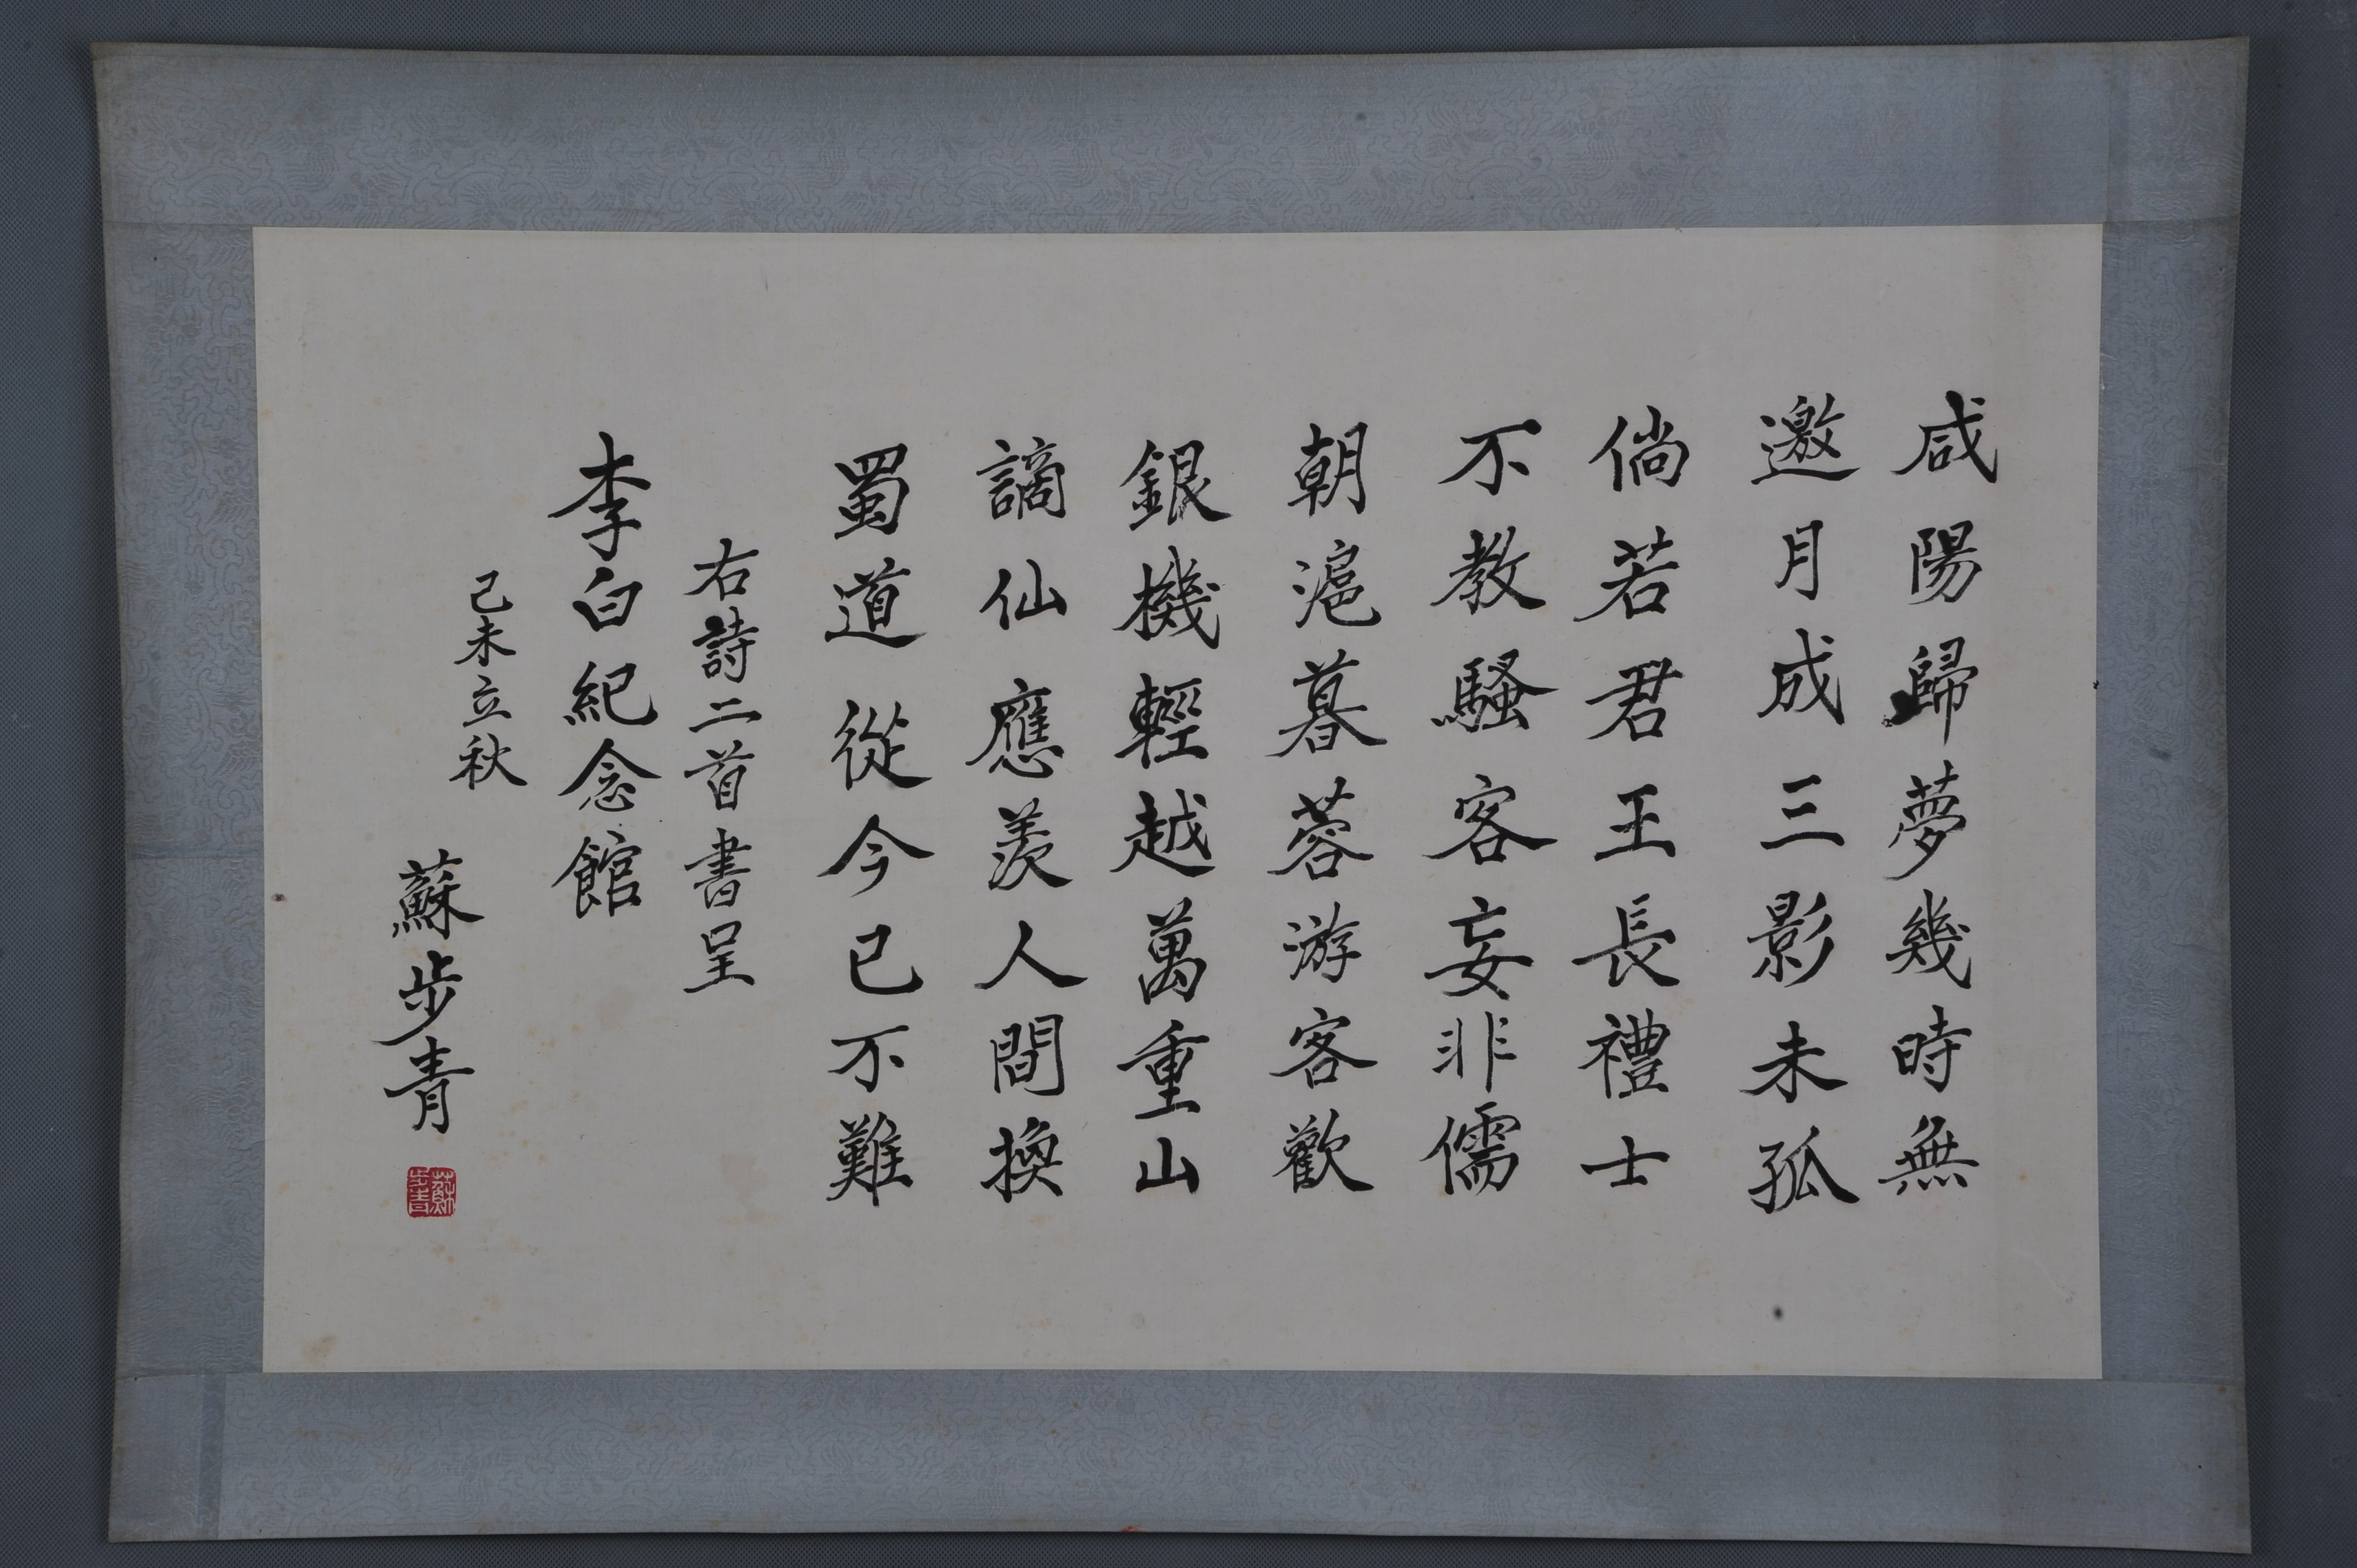 咸陽歸夢幾時無
邀月成三影未孤
倘若君王長禮士
不教騷客妄非儒
朝滬暮蓉游客歡
銀機輕越萬重山
謫仙應羨人間換
蜀道從今已不難
右詩二首書呈
李白紀念館
己未立秋
蘇步青
蘇步青